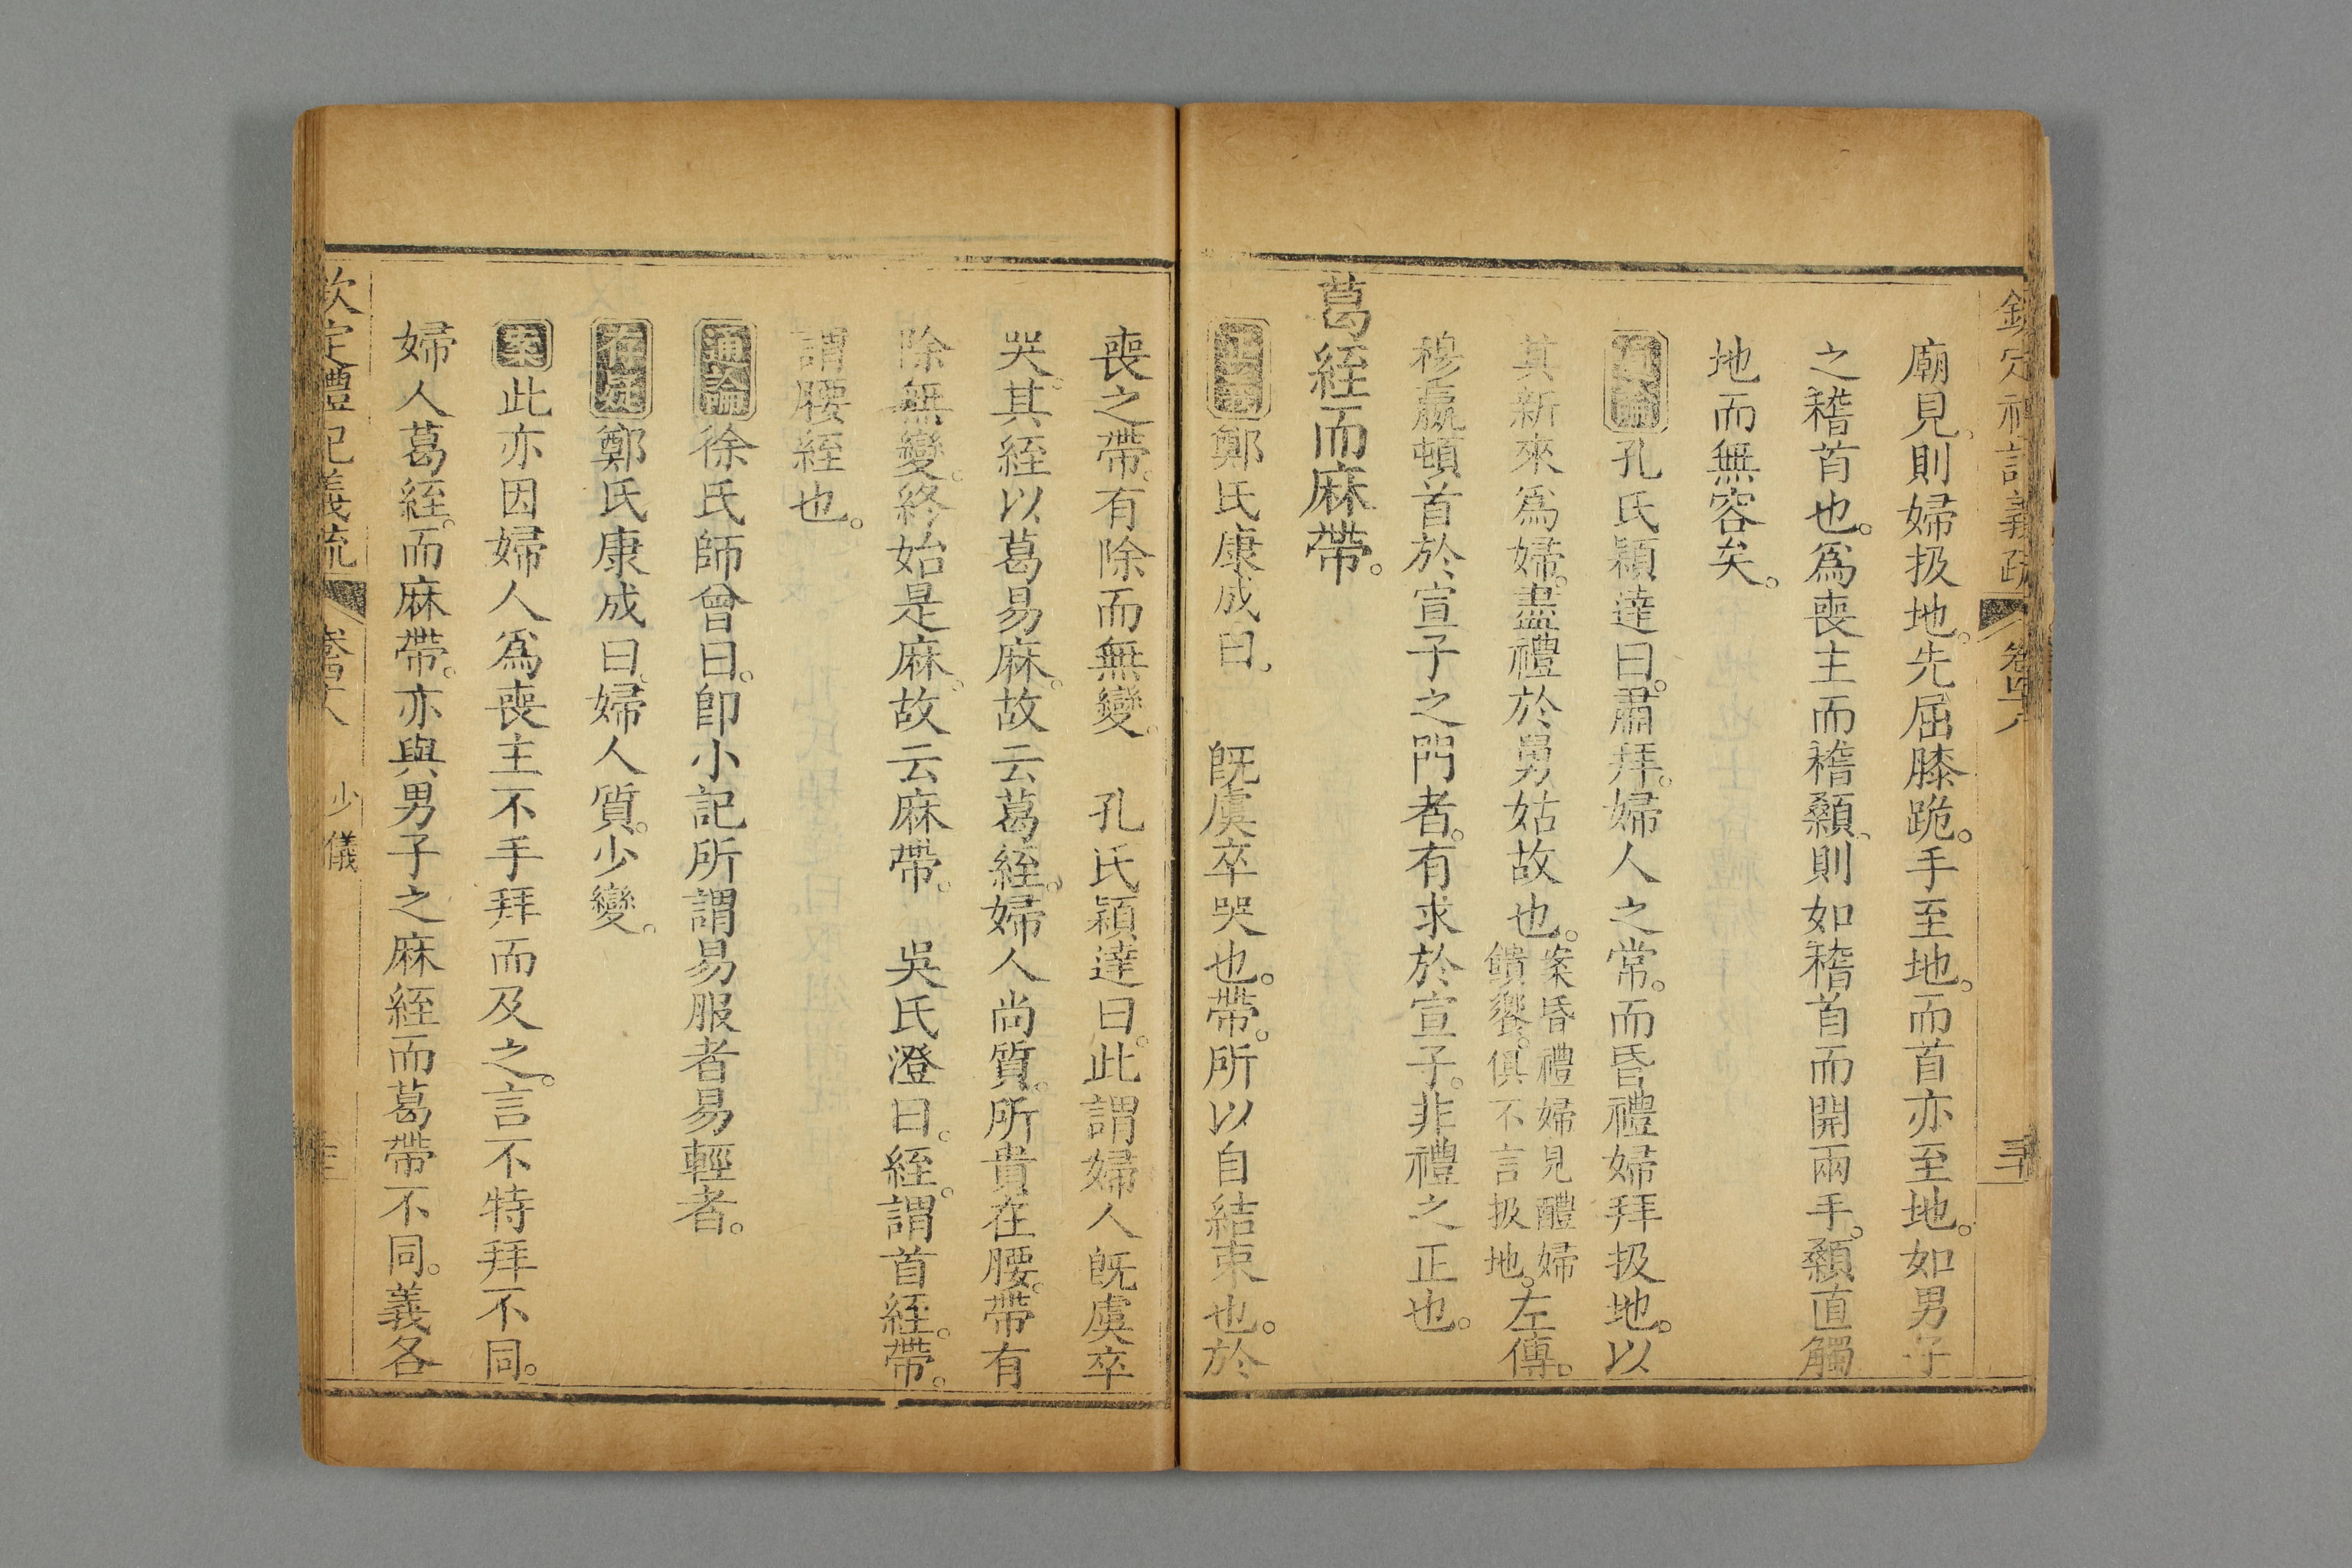 欽定禮記義疏 卷四十八 三十
廟見則婦扱地。先屈膝跪。手至地。而首亦至地。如男子
之稽首也。爲喪主而稽顙、則如稽首而開兩手。顙直觸
地而無容矣。
通論孔氏穎達曰。肅拜。婦人之常。而昏禮婦拜扱地。以
其新來爲婦。盡禮於舅姑故也。案昏禮婦見醴婦饋饗。俱不言扱地。左傳。
穆嬴頓首於宣子之門者。有求於宣子。非禮之正也。
葛絰而麻帶。
正義鄭氏康成曰。 旣虞卒哭也。帶。所以自結束也。於
喪之帶。有除而無變。 孔氏穎達曰。此謂婦人旣虞卒
哭。其絰以葛易麻。故云葛絰。婦人尚質。所貴在腰。帶有
除無變。終始是麻。故云麻帶。 吳氏澄曰。絰。謂首絰。帶。
謂腰絰也。
通論徐氏師曾曰。卽小記所謂易服者易輕者。
存疑鄭氏康成曰。婦人質。少變。
案此亦因婦人爲喪主不手拜而及之。言不特拜不同。
婦人葛絰。而麻帶。亦與男子之麻絰而葛帶不同。義各
欽定禮記義疏 卷四十八 少儀